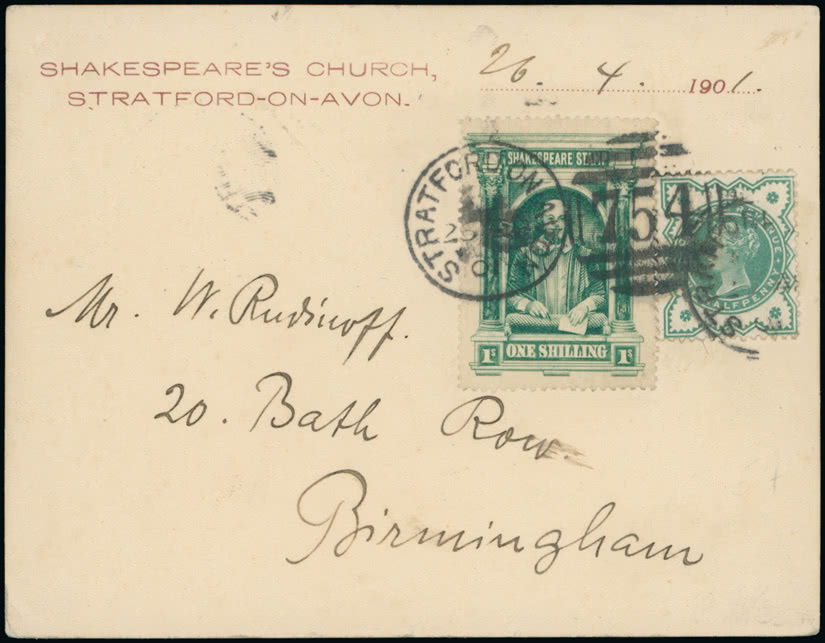 SHAKESPEARE'S CHURCH,
STRATFORD-ON-AVON.
26. 4. 1901.
SHAKESPEARE STAMP
STRATFORD ON AVON
754
HALFPENNY
1s ONE SHILLING 1s
Mr. W. Rudinoff.
20. Bath Row.
Birmingham